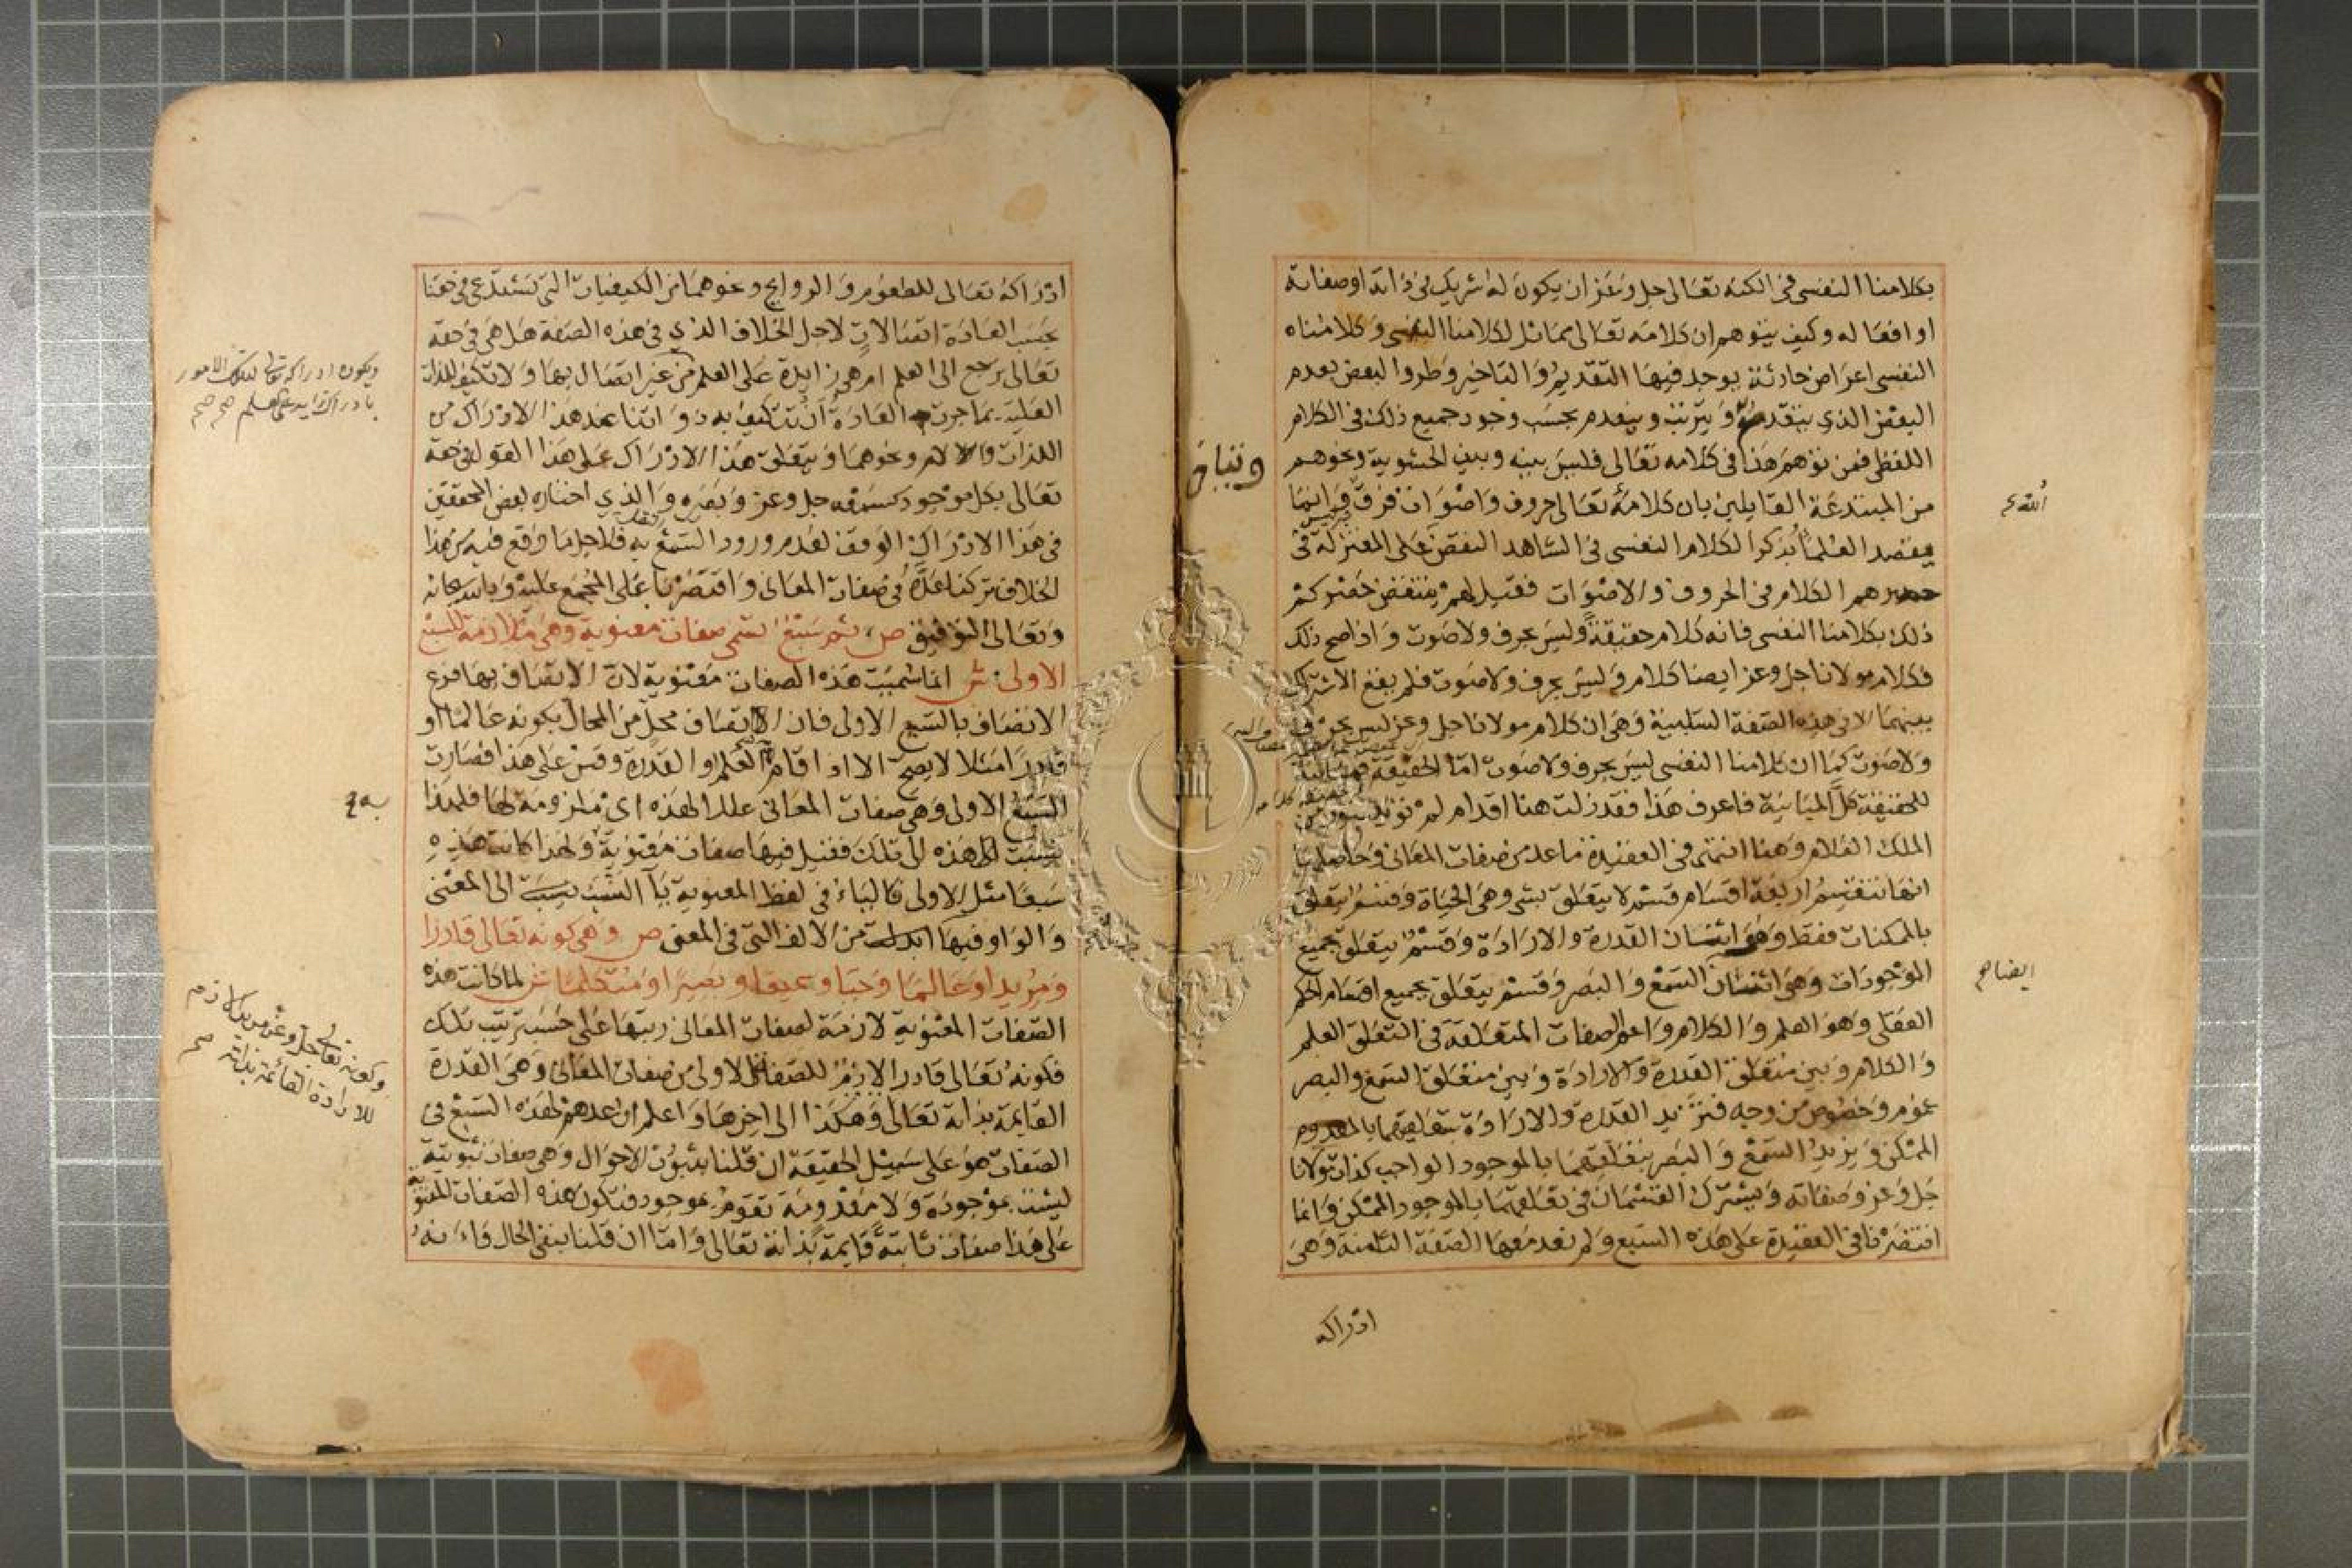 بكلامنا النفسى فى الكنه تعالى جل وعز ان يكون له شريك فى ذاته او صفاته
او افعاله وكيف يتوهم ان كلامه تعالى مماثل لكلامنا النفسى وكلامنا
النفسى اعراض حادثة يوجد فيها التقديم والتاخير وطروا البعض بعدم
البعض الذي يتقدمه ويترتب وينعدم بحسب وجود جميع ذلك فى الكلام
اللفظى فمن توهم هذا فى كلامه تعالى فليس بينه وبين الحشوية ونحوهم
من المبتدعة القايلين بان كلامه تعالى حروف واصوات فرق وانما
مقصد العلما بذكر الكلام النفسى فى الشاهد النقض على المعتزلة فى
حصرهم الكلام فى الحروف والاصوات فقيل لهم ينتقض حصركم
ذلك بكلامنا النفسى فانه كلام حقيقة وليس بحرف ولا صوت واذا صح ذلك
فكلام مولانا جل وعز ايضا كلام وليس بحرف ولا صوت فلم يقع الاشتراك
بينهما الا فى هذه الصفة السلبية وهى ان كلام مولانا جل وعز ليس بحرف
ولا صوت كما ان كلامنا النفسى ليس بحرف ولا صوت اما الحقيقة فمباينة
للحقيقة كل المباينة فاعرف هذا فقد زلت هنا اقدام لم تؤيد بنور من
الملك العلام وهنا انتهى فى العقيدة ما عد من صفات المعانى وحاصلها
انها تنقسم اربعة اقسام قسم لا يتعلق بشى وهى الحياة وقسم يتعلق
بالممكنات فقط وهو اثنان القدرة والارادة وقسم يتعلق بجميع
الموجودات وهى اثنان السمع والبصر وقسم يتعلق بجميع اقسام الحكم
العقلى وهو العلم والكلام واعم الصفات المتعلقة فى التعلق العلم
والكلام وبين متعلق القدرة والارادة وبين متعلق السمع والبصر
عموم وخصوص من وجه فتزيد القدرة والارادة بتعلقهما بالمعدوم
الممكن ويزيد السمع والبصر بتعلقهما بالموجود الواجب كذات مولانا
جل وعز وصفاته ويشترك القسمان فى تعلقهما بالموجود الممكن وانما
اقتصرنا فى العقيدة على هذه السبع ولم نعد معها الصفة الثامنة وهى
ادراكه
ايضا صح
ادراكه تعالى للطعوم والروايح ونحوهما من الكيفيات التى تستدعى فى حقنا
بحسب العادة اتصالات لاجل الخلاف الذي فى هذه الصفة هل هى فى حقه
تعالى يرجع الى العلم ام هى زايدة على العلم من غير اتصال بها ولا تكيف للذات
العلية بما جرت العادة ان تتكيف به ذواتنا عند هذا الادراك من
اللذات والالام ونحوهما ويتعلق هذا الادراك على هذا القول فى حقه
تعالى بكل موجود كسمعه جل وعز وبصره والذي اختاره بعض المحققين
فى هذا الادراك الوقف لعدم ورود السمع به فلاجل ما وقع فيه من هذا
الخلاف تركنا عده فى صفات المعانى واقتصرنا على المجمع عليه وبالله سبحانه
وتعالى التوفيق ص ثم سبع تسمى صفات معنوية وهى ملازمة للسبع
الاولى ش انما سميت هذه الصفات معنوية لان الاتصاف بها فرع
الاتصاف بالسبع الاولى فان اتصاف محل من المحال بكونه عالما او
قادرا مثلا لا يصح الا اذا قام به العلم او القدرة وقس على هذا فصارت
السبع الاولى وهى صفات المعانى عللا لهذه اى ملزومة لها فلهذا
نسبت هذه الى تلك فقيل فيها صفات معنوية ولهذا كانت هذه
سبعا مثل الاولى فالياء فى لفظ المعنوية يا النسب نسبت الى المعنى
والواو فيها ابدلت من الالف التى فى المعنى ص وهى كونه تعالى قادرا
ومريدا وعالما وحيا وسميعا وبصيرا ومتكلما ش لما كانت هذه
الصفات المعنوية لازمة لصفات المعانى رتبها على حسب ترتيب تلك
فكونه تعالى قادرا لازم للصفة الاولى من صفات المعانى وهى القدرة
القايمة بذاته تعالى وهكذا الى اخرها واعلم ان عدهم لهذه السبع فى
الصفات هو على سبيل الحقيقة ان قلنا بثبوت الاحوال وهى صفات ثبوتية
ليست موجودة ولا معدومة تقوم بموجود فتكون هذه الصفات المعنوية
على هذا صفات ثابتة قايمة بذاته تعالى واما ان قلنا بنفى الحال وانه
وكونه تعالى جل وعز مريدا لازم
للارادة القائمة بذاته صح